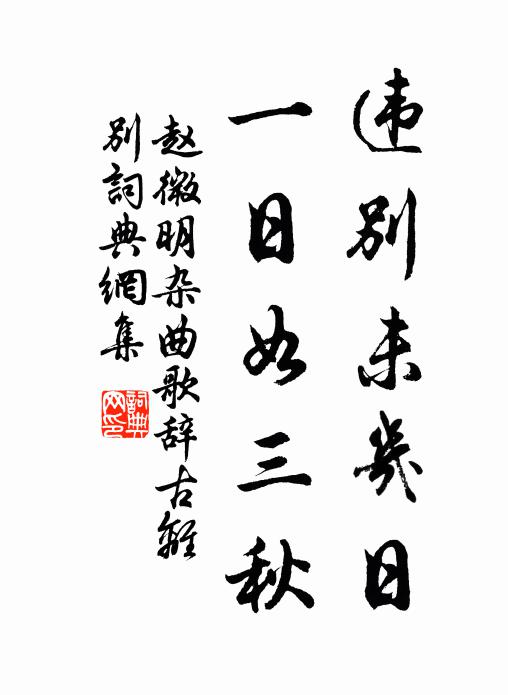 违别未幾日
一日如三秋
赵微明杂曲歌辞古離
别詞典網集
詞典
网印